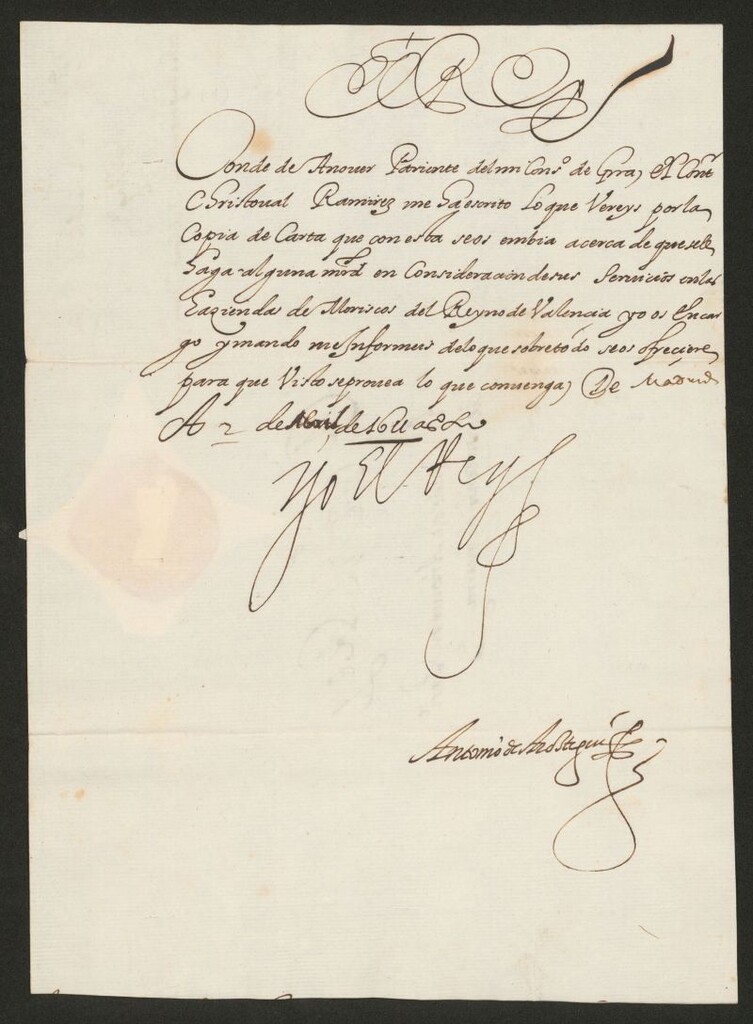 El Rey
Conde de Anouer Pariente del mi Cons.º de Grra, El Cont.
Christoual Ramirez me ha escrito Lo que Vereys por la
Copia de Carta que con esta se os embia acerca de que se le
haga alguna mrd en Consideracion de sus Seruicios en las
haziendas de Moriscos del Reyno de Valencia yo os Encar
go y mando me Informeis de lo que sobre todo se os ofreciere
para que Visto se prouea lo que conuenga, De Madrid
A 2 de Abril, de 1611 as
Yo El Rey
Antonio de Arostegui